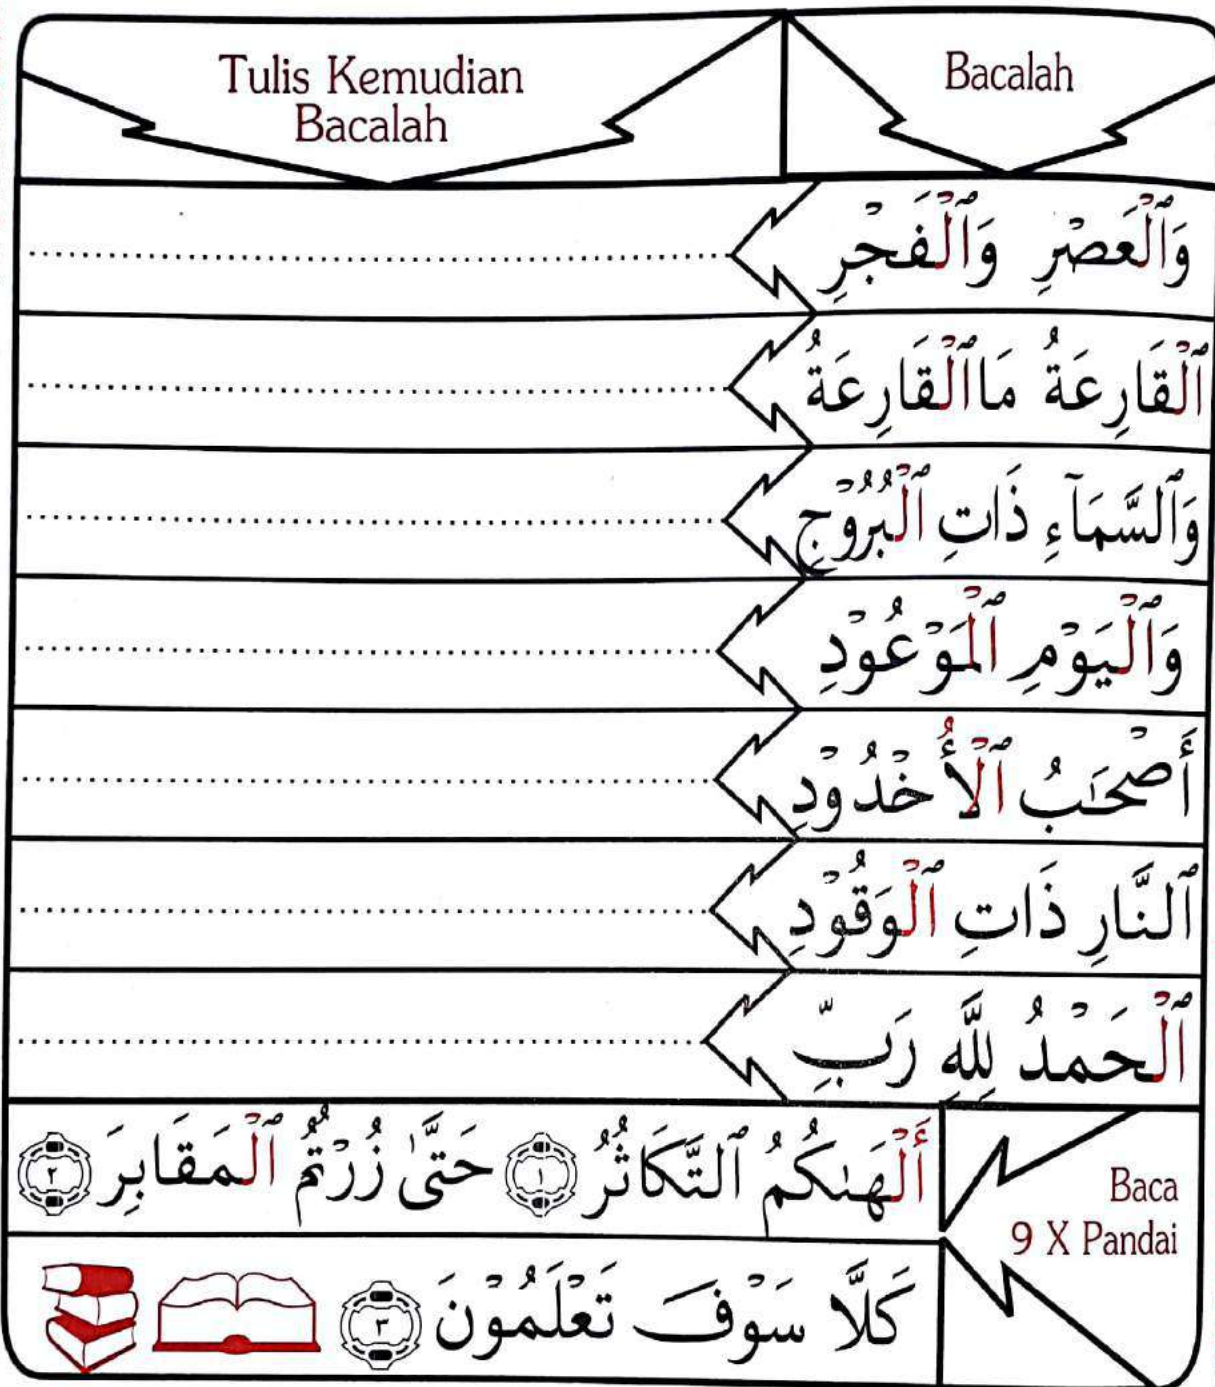 Tulis Kemudian
Bacalah
Bacalah
وَٱلْعَصْرِ وَٱلْفَجْرِ
ٱلْقَارِعَةُ مَاٱلْقَارِعَةُ
وَٱلسَّمَآءِ ذَاتِ ٱلْبُرُوْجِ
وَٱلْيَوْمِ ٱلْمَوْعُوْدِ
أَصْحَٰبُ ٱلْأُخْدُوْدِ
ٱلنَّارِ ذَاتِ ٱلْوَقُوْدِ
ٱلْحَمْدُ لِلَّهِ رَبِّ
Baca
9 X Pandai
أَلْهَىٰكُمُ ٱلتَّكَاثُرُ ١ حَتَّىٰ زُرْتُمُ ٱلْمَقَابِرَ ٢
كَلَّا سَوْفَ تَعْلَمُوْنَ ٣